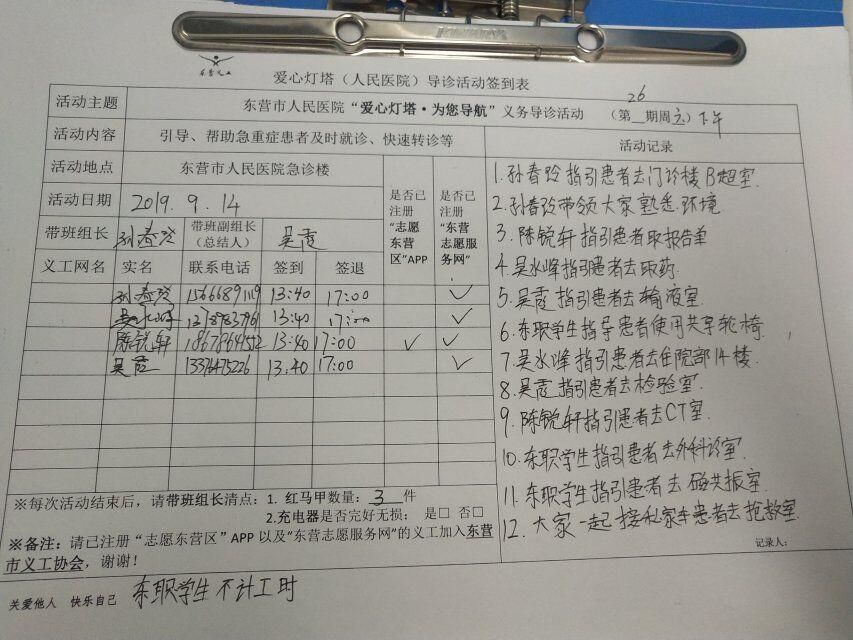 东营义工
爱心灯塔（人民医院）导诊活动签到表
活动主题 东营市人民医院“爱心灯塔·为您导航”义务导诊活动 （第26期周六）下午
活动内容 引导、帮助急重症患者及时就诊、快速转诊等 活动记录
活动地点 东营市人民医院急诊楼
活动日期 2019.9.14
是否已注册“志愿东营区”APP
是否已注册“东营志愿服务网”
带班组长 孙春玲 带班副组长（总结人） 吴霞
义工网名 实名 联系电话 签到 签退
孙春玲 13:40 17:00 ✓
吴水峰 13:40 17:00 ✓
陈锐轩 13:40 17:00 ✓ ✓
吴霞 13376475226 13:40 17:00 ✓
1.孙春玲指引患者去门诊楼B超室.
2.孙春玲带领大家熟悉环境
3.陈锐轩指引患者取报告单
4.吴水峰指引患者去取药.
5.吴霞指引患者去输液室.
6.东职学生指导患者使用共享轮椅.
7.吴水峰指引患者去住院部14楼.
8.吴霞指引患者去检验室.
9.陈锐轩指引患者去CT室.
10.东职学生指引患者去外科诊室.
11.东职学生指引患者去磁共振室.
12.大家一起接私家车患者去抢救室.
记录人：
※每次活动结束后，请带班组长清点：1. 红马甲数量：3 件
2.充电器是否完好无损： 是□ 否□
※备注：请已注册“志愿东营区”APP 以及“东营志愿服务网”的义工加入东营
市义工协会，谢谢！
关爱他人 快乐自己 东职学生不计工时